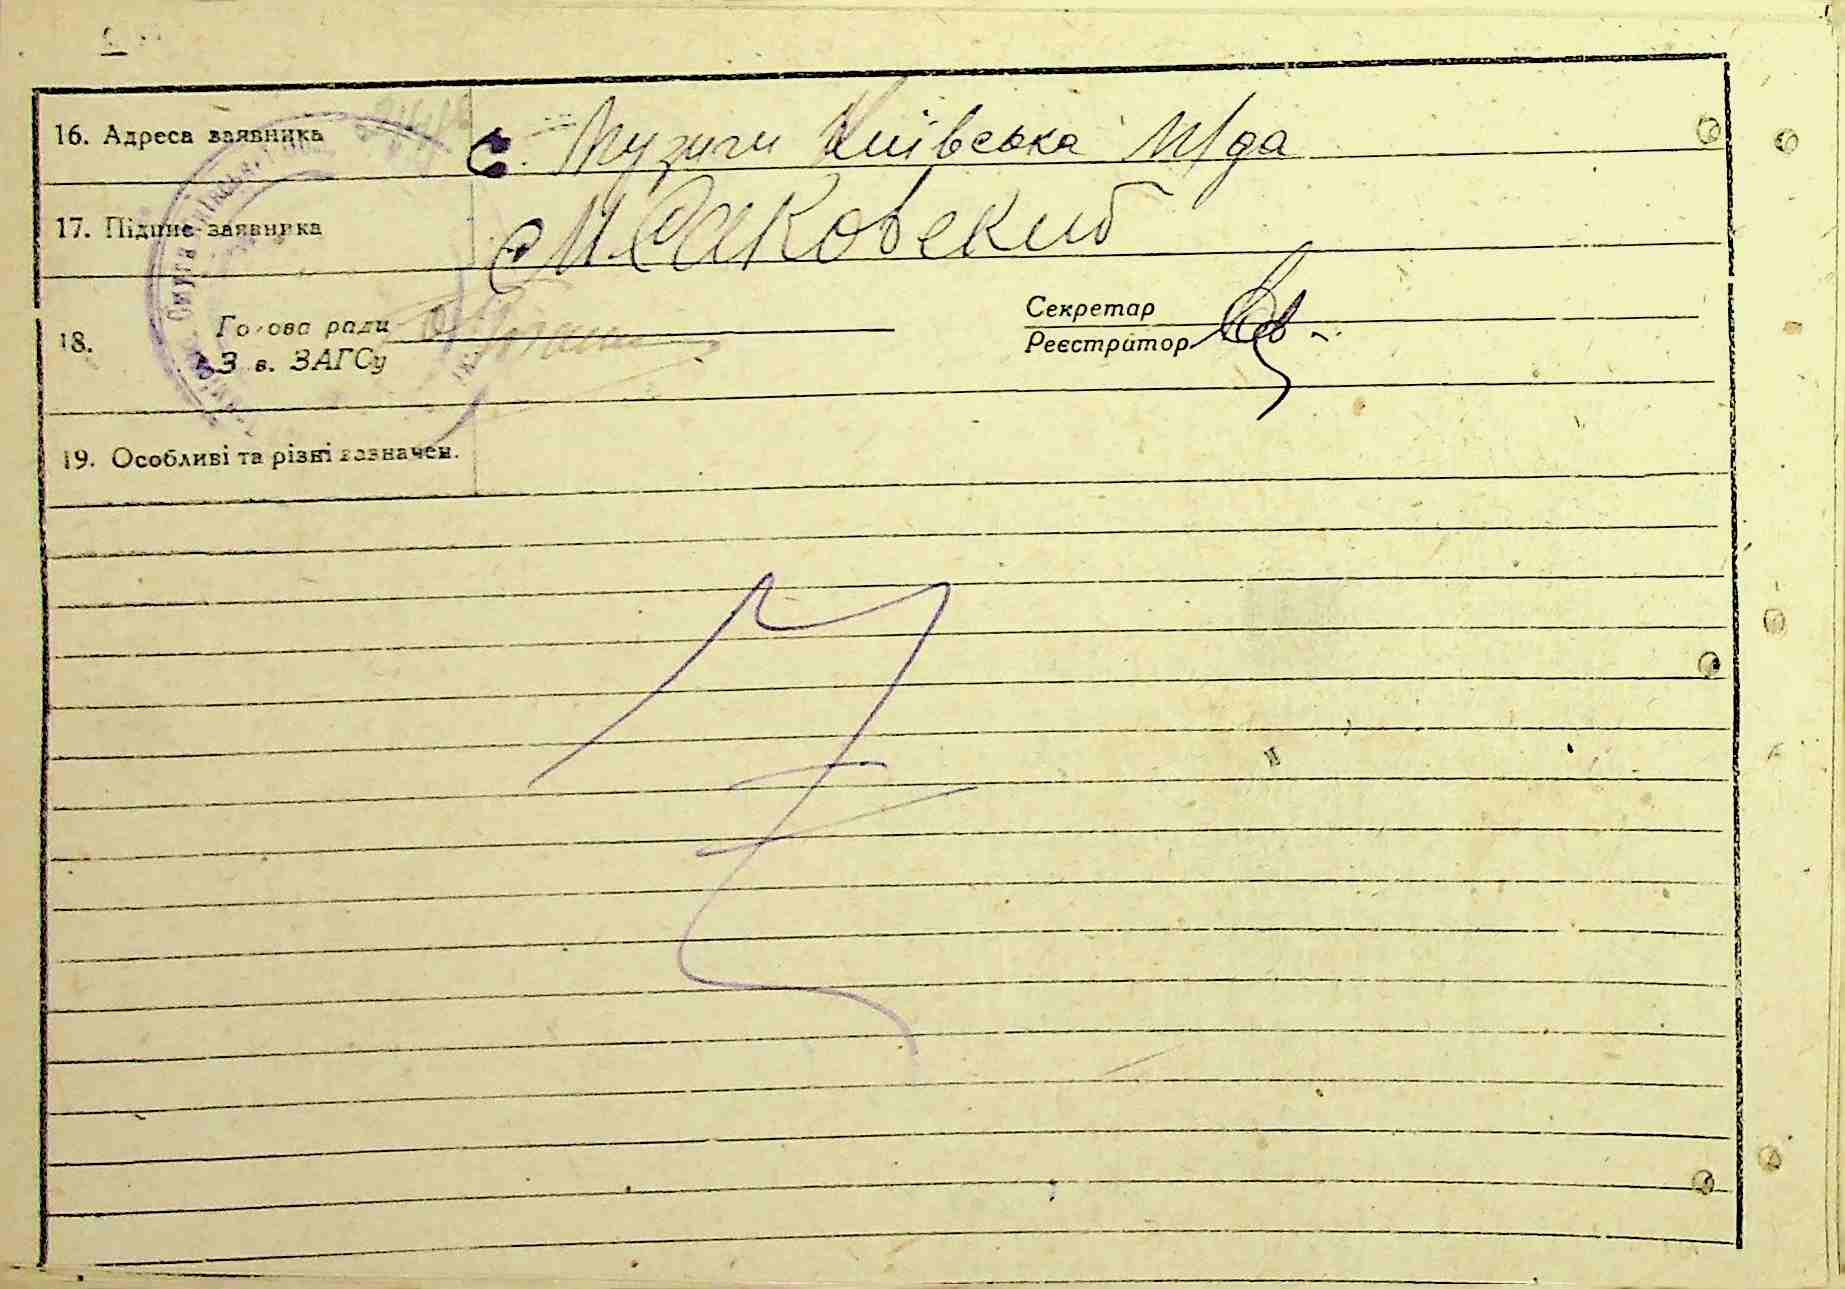 16. Адреса заявника с. Музичи Київська М/да
17. Підпис заявника МСаковский
18. Голова ради Секретар
Зав. ЗАГСу Реєстратор
19. Особливі та різні зазначен.